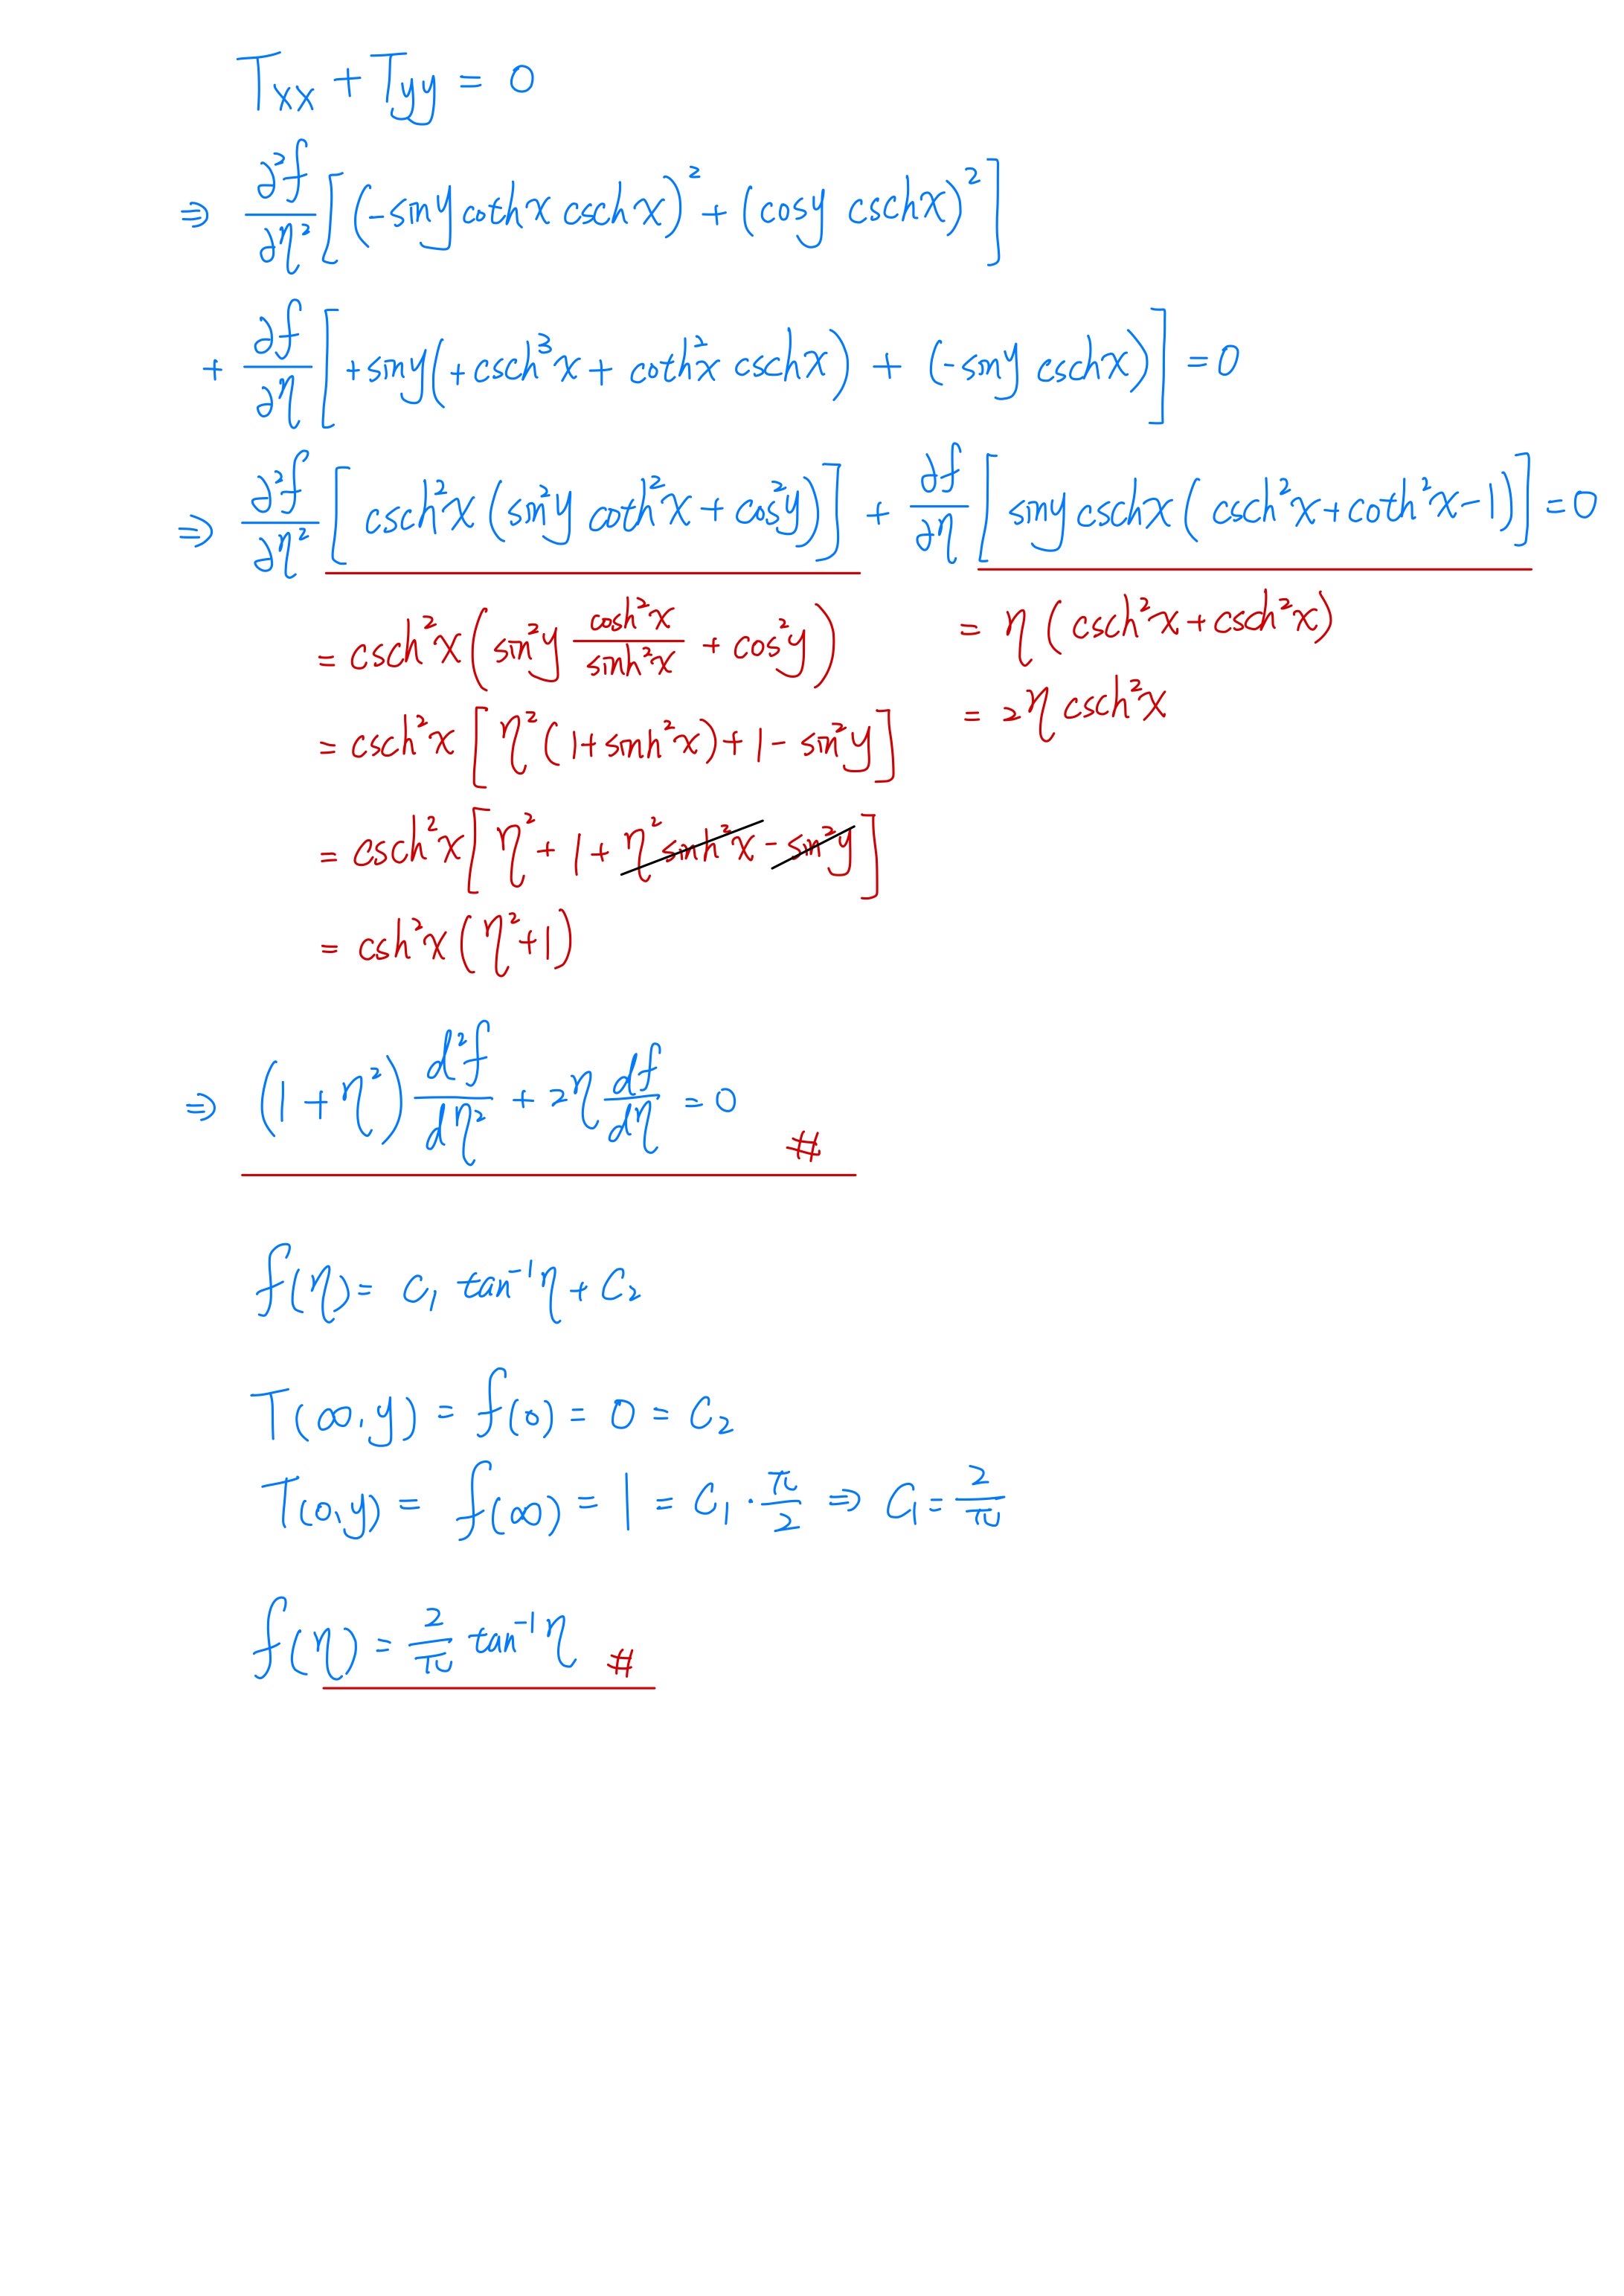 Txx + Tyy = 0
⇒ ∂²f/∂η² [(-siny cothx cschx)² + (cosy cschx)²]
+ ∂f/∂η [+siny(+csch³x + coth²x cschx) + (-siny cschx)] = 0
⇒ ∂²f/∂η² [csch²x (sin²y coth²x + cos²y)] + ∂f/∂η [siny cschx (csch²x + coth²x - 1)] = 0
= csch²x (sin²y cosh²x/sinh²x + cos²y)
= η (csch²x + csch²x)
= csch²x [η² (1 + sinh²x) + 1 - sin²y]
= 2η csch²x
= csch²x [η² + 1 + η² sinh²x - sin²y]
= csh²x (η² + 1)
⇒ (1 + η²) d²f/dη² + 2η df/dη = 0 #
f(η) = C₁ tan⁻¹η + C₂
T(∞,y) = f(0) = 0 = C₂
T(0,y) = f(∞) = 1 = C₁ · π/2 ⇒ C₁ = 2/π
f(η) = 2/π tan⁻¹η #